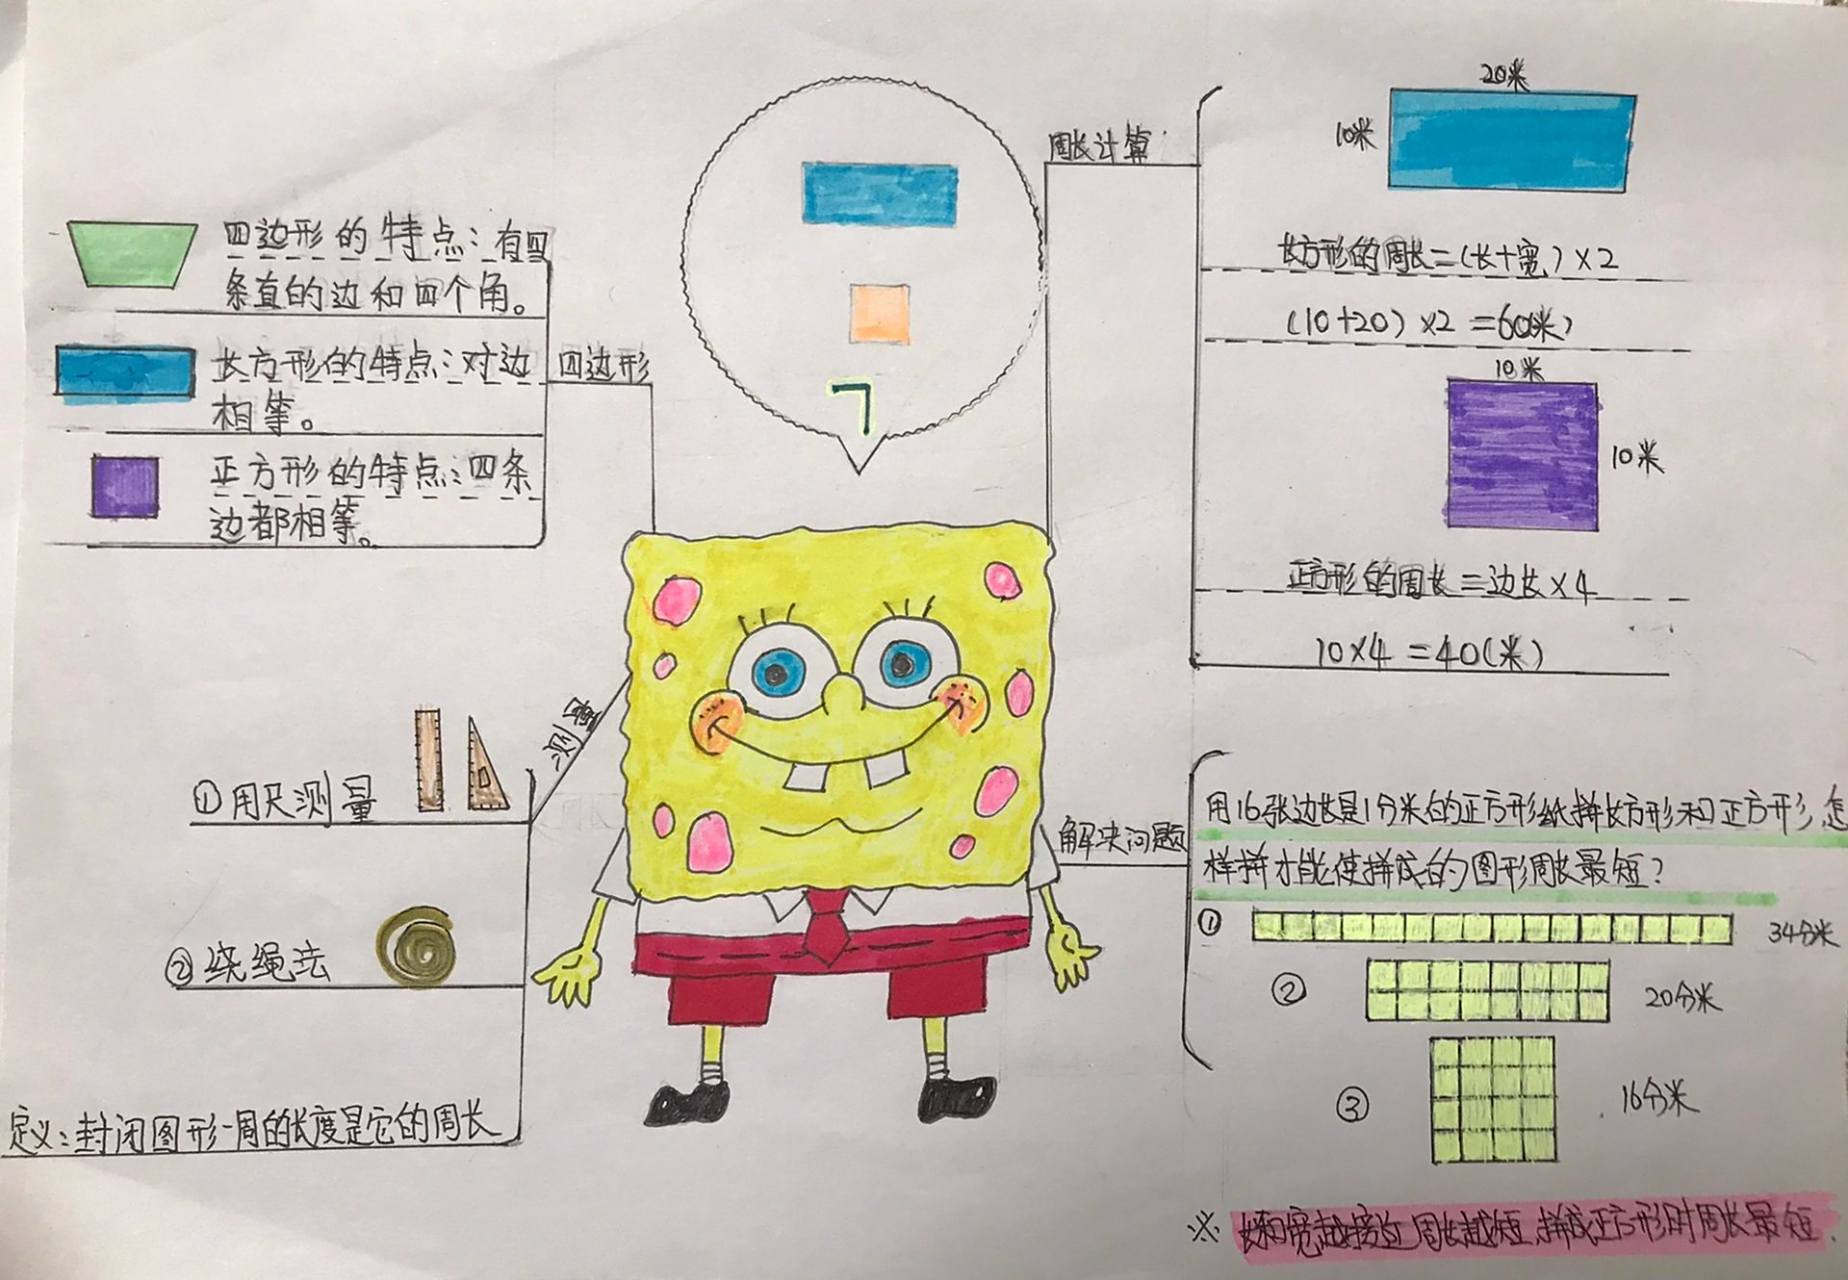 四边形的特点：有四
条直的边和四个角。
长方形的特点：对边
相等。
正方形的特点：四条
边都相等。
四边形
周长计算
20米
10米
长方形的周长=(长+宽)×2
(10+20)×2=60(米)
10米
10米
正方形的周长=边长×4
10×4=40(米)
①用尺测量
②绕绳法
定义：封闭图形一周的长度是它的周长
解决问题
用16张边长是1分米的正方形纸拼长方形和正方形,怎
样拼才能使拼成的图形周长最短？
①
34分米
②
20分米
③
16分米
※长和宽越接近周长越短,拼成正方形时周长最短.